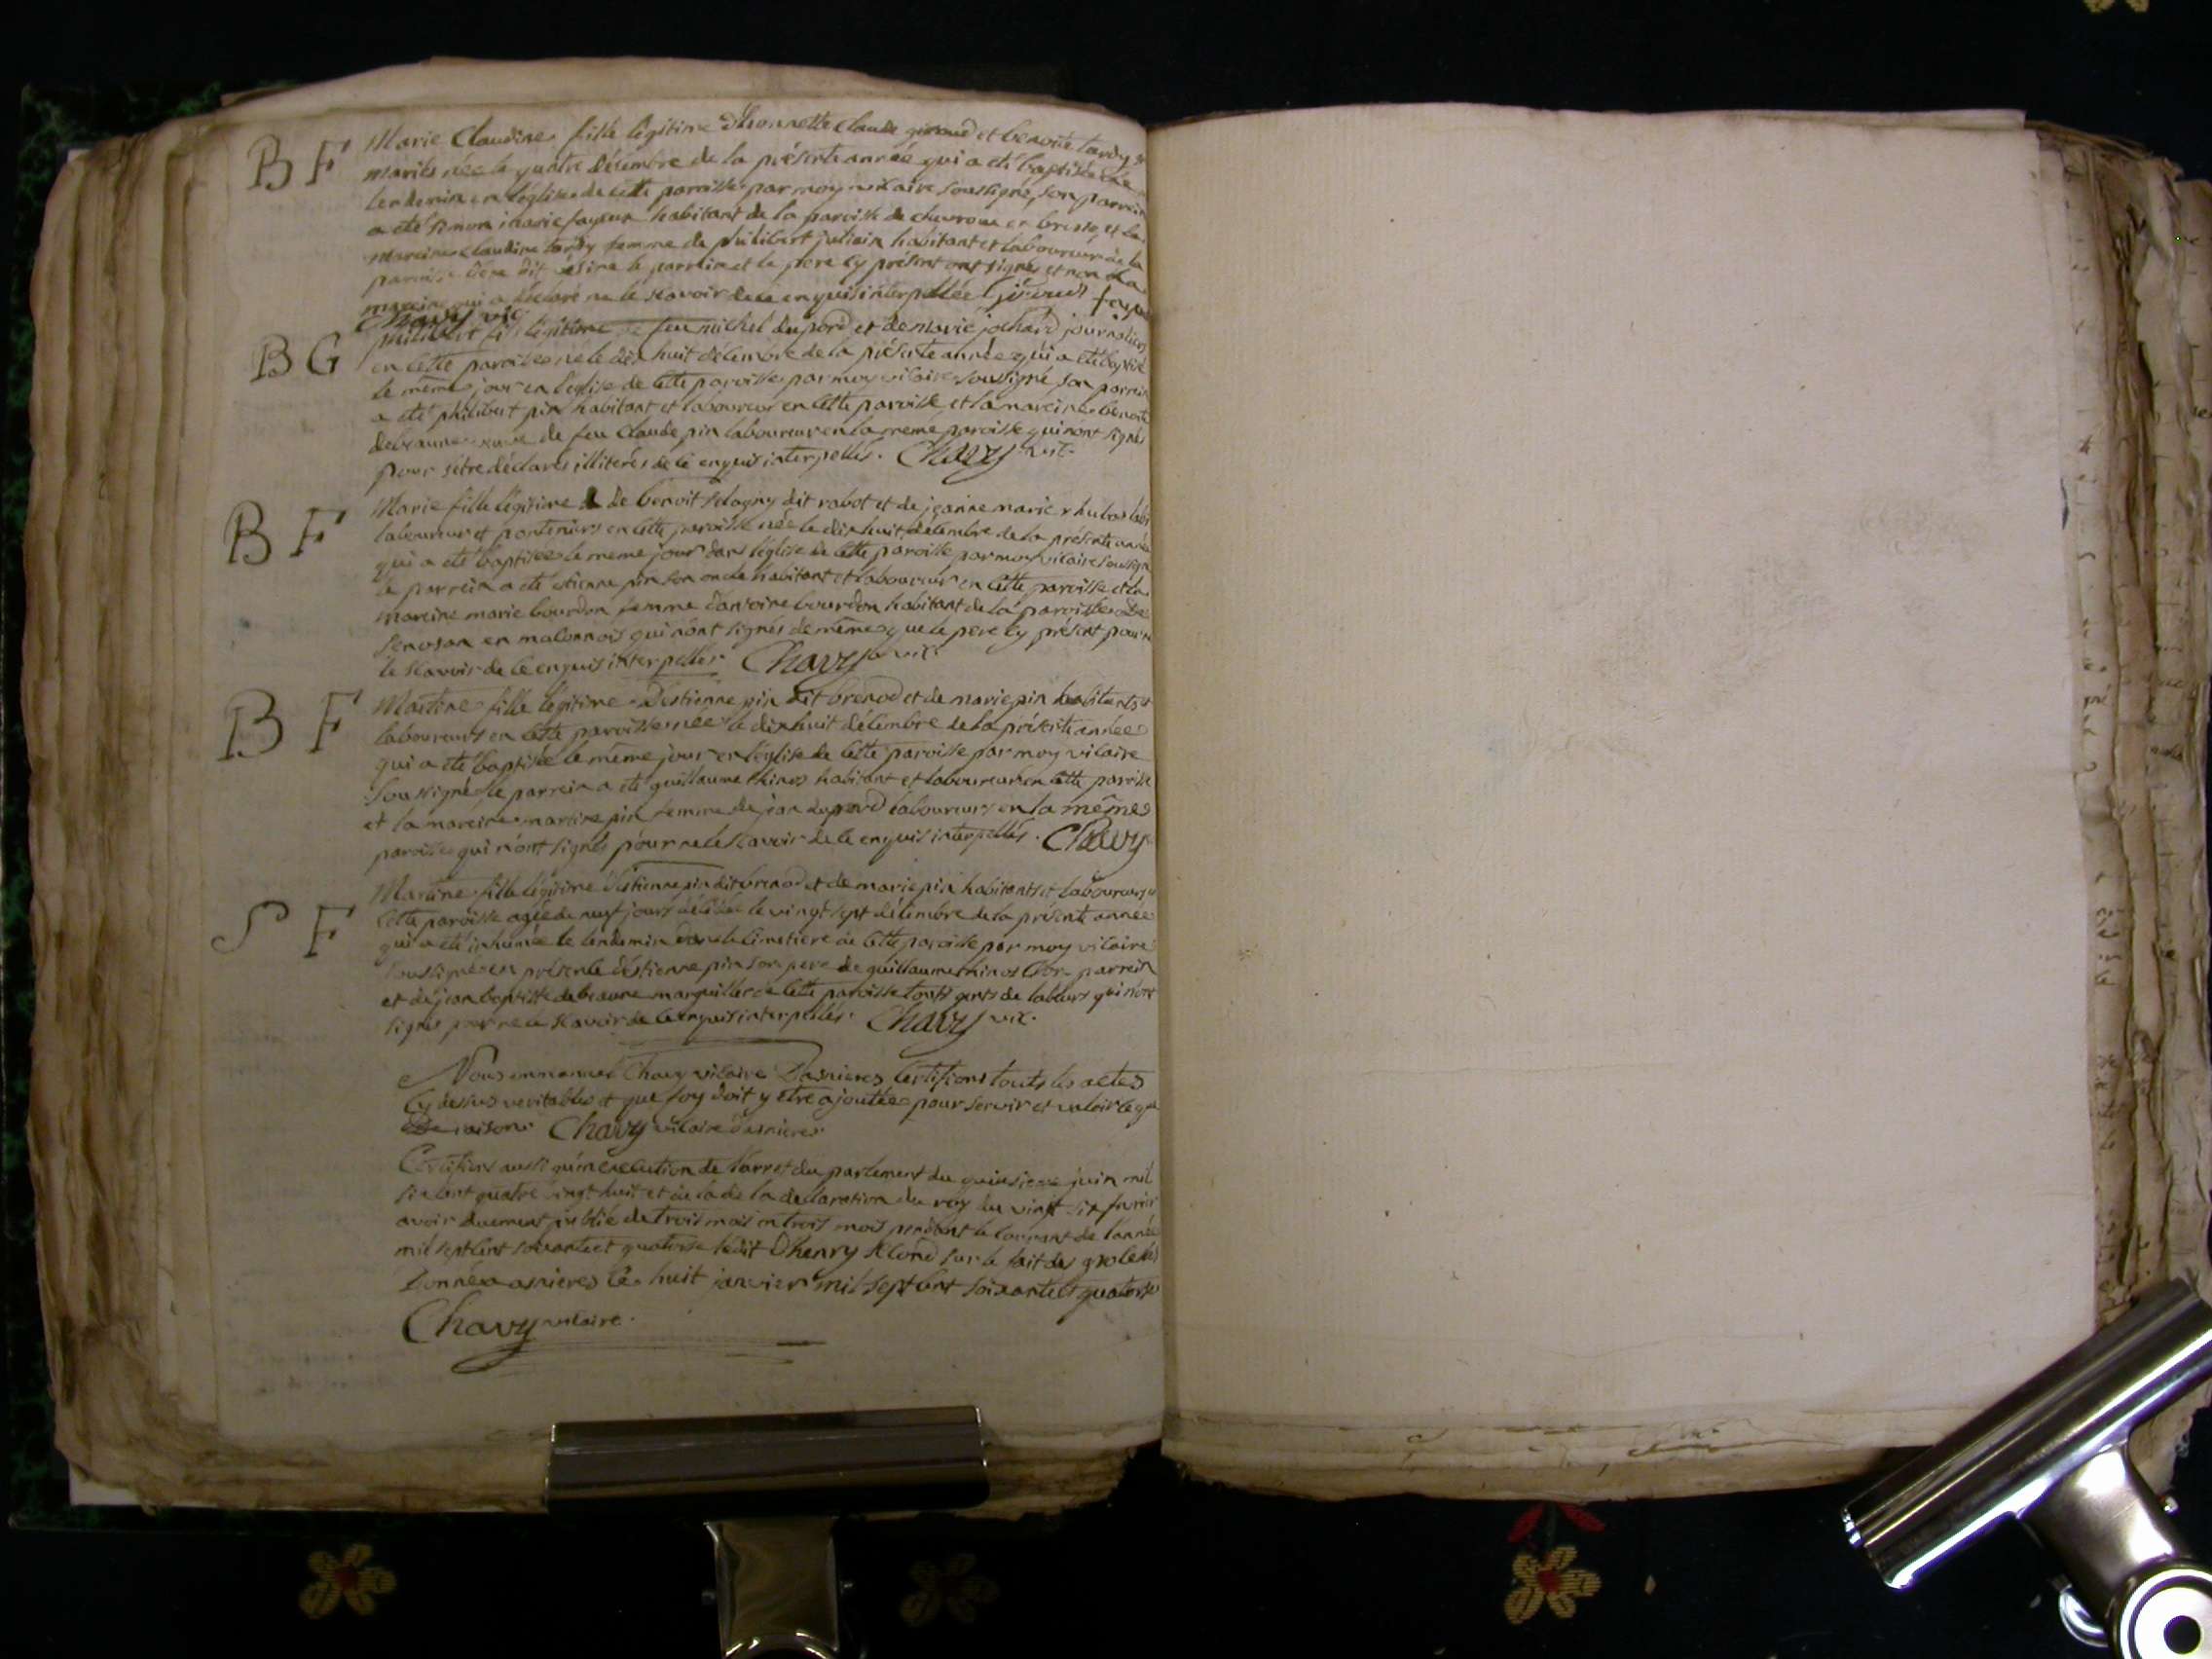 B F
Marie Claudine fille légitime d'honnette Claude giroud et benoite tardy
mariés née le quatre décembre de la présente année qui a eté baptisée le
lendemin en l'église de cette paroisse par moy vicaire soussigné, son parrein
a eté simon marie fayeux habitant de la paroisse de chevroux en bresse, et la
mareine Claudine tardy femme de philibert habitant et laboureur de la
paroisse le parrein et le pere cy présent ont signés et non la
mareine qui a déclaré ne le scavoir de ce enquis interpellée Giroud
Chavy vic
B G
philibert fils légitime de feu michel dupord et de marie jochard journaliers
en cette paroisse né le dix huit décembre de la présente année qui a eté baptisé
le même jour en l'église de cette paroisse par moy vicaire soussigné son parrein
a eté philibert pin habitant et laboureur en cette paroisse et la mareine benoite
debeaune veuve de feu Claude pin laboureur en la meme paroisse qui n'ont signés
pour s'être déclarés illiterés de ce enquis interpellés. Chavy vic.
B F
Marie fille légitime de benoit delogny dit rabot et de jeanne marie
laboureur et en cette paroisse née le dix huit décembre de la présente année
qui a eté baptisée le meme jour dans l'église de cette paroisse par moy vicaire soussigné
le parrein a eté estienne pin son oncle habitant et laboureur en cette paroisse et la
mareine marie bourdon femme d'antoine bourdon habitant de la paroisse de
senosan en maconnois qui n'ont signés de même que le pere cy présent pour ne
le scavoir de ce enquis interpellés Chavy vic
B F
Martine fille légitime d'estienne pin dit brenod et de marie pin habitants et
laboureurs en cette paroisse née le dix huit décembre de la présente année
qui a eté baptisée le même jour en l'église de cette paroisse par moy vicaire
soussigné le parrein a eté guillaume habitant et laboureur en cette paroisse
et la mareine martine pin femme de jean dupord laboureurs en la même
paroisse qui n'ont signés pour ne le scavoir de ce enquis interpellés. Chavy
S F
Martine fille légitime d'estienne pin dit brenod et de marie pin habitants et laboureurs en
cette paroisse agée de neuf jours décédée le vingt sept décembre de la présente année
qui a eté inhumée le lendemin dans le cimetiere de cette paroisse par moy vicaire
soussigné en présence d'estienne pin son pere de guillaume son parrein
et de jean baptiste debeaune marguillier de cette paroisse touts gents de labeurs qui n'ont
signés pour ne le scavoir de ce enquis interpellés. Chavy vic.
Nous emmanuel Chavy vicaire Dasnieres Certifions touts les actes
Cy dessus veritables et que foy doit y etre ajoutée pour servir et valoir ce que
De raison. Chavy vicaire d'asnieres
Certifions aussi qu'en execution de l'arret du parlement du quinsieme juin mil
six cent quatre vingt huit et de la declaration du roy du vingt six fevrier
avoir duement publié de trois mois en trois mois pendant le courant de l'année
mil sept cent soixante et quatorse l'edit Dhenry second sur le fait des
Donné a asnieres le huit janvier mil sept cent soixante et quatorse
Chavy vicaire.